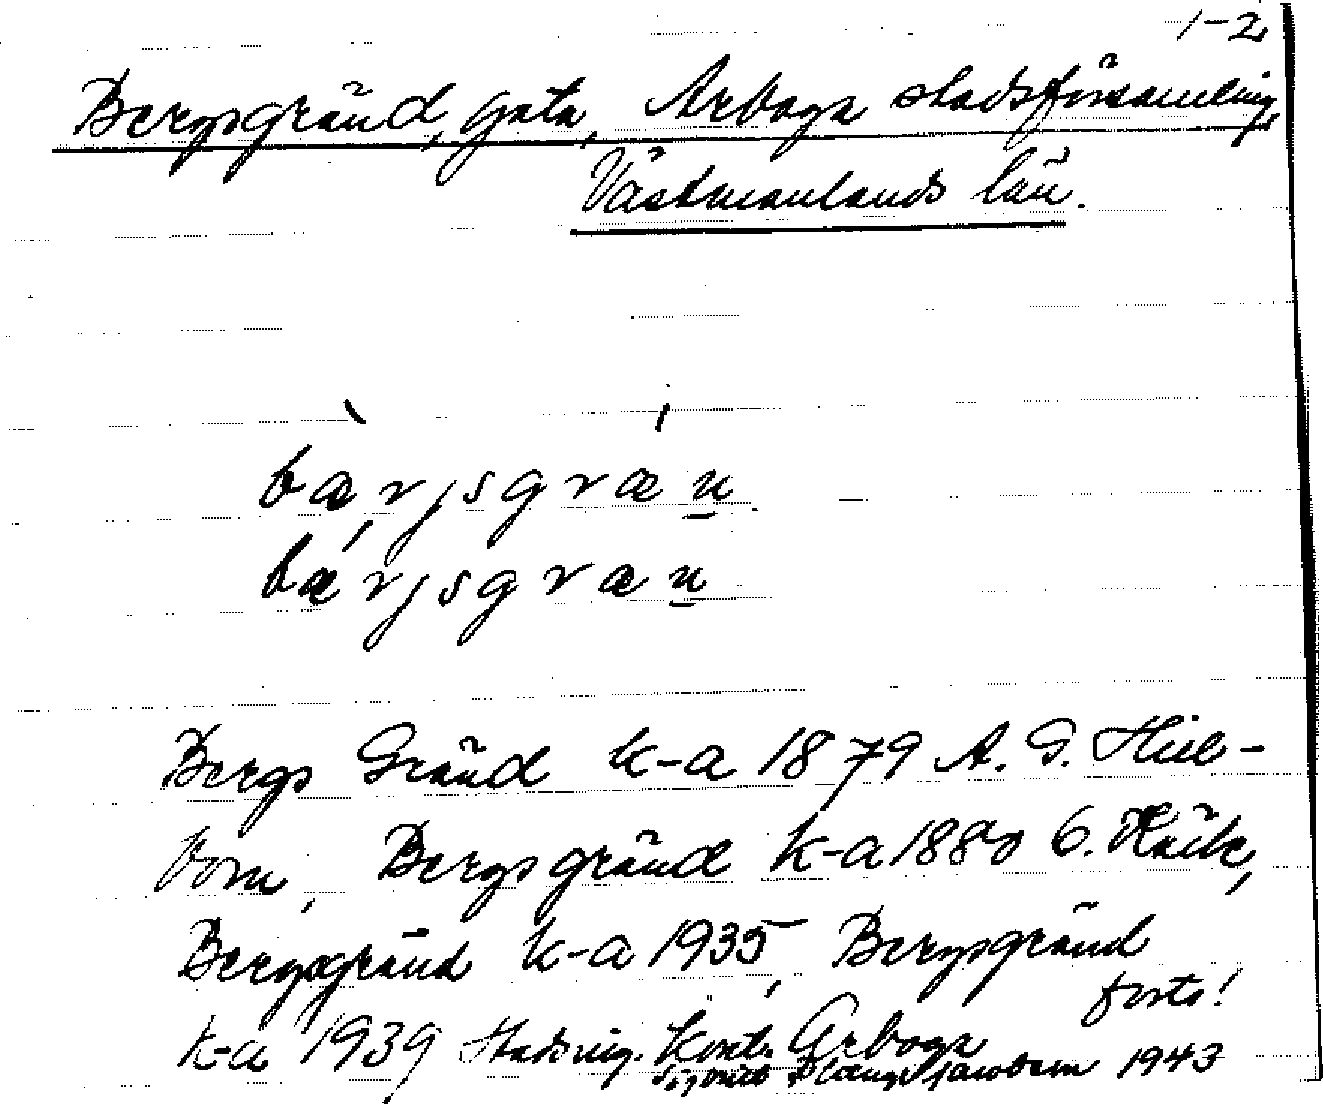 1-2
Bergsgränd, gata, Arboga stadsförsamling,
Västmanlands län.
bæ̀rjsgræ´n
bæ´rjsgræn
Bergs Gränd k-a 1879 A. G.
Bergsgränd k-a 1880 G.
Bergsgränd k-a 1935, Bergsgränd
forts!
k-a 1939 Stadsing. kont. Arboga
1943